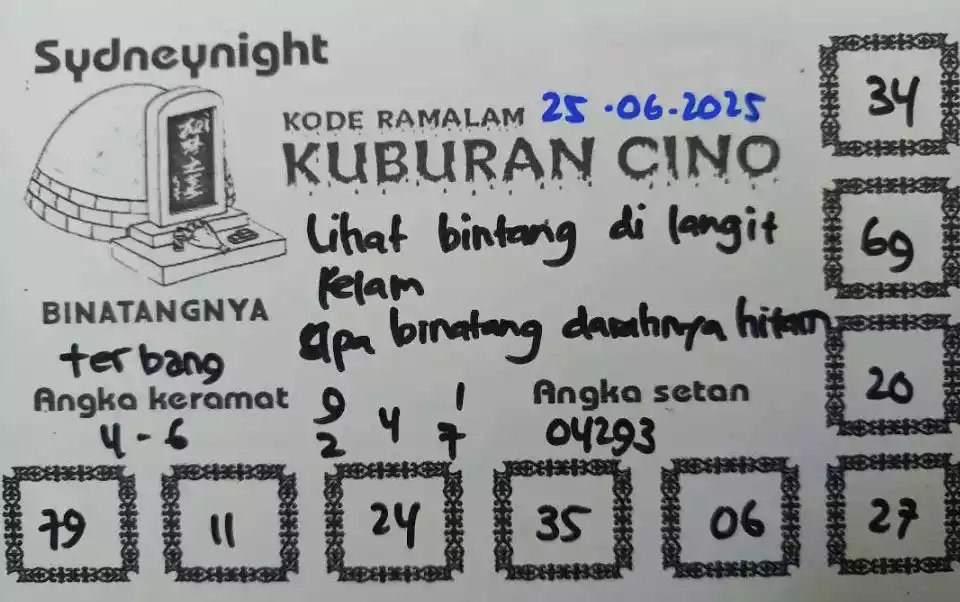 Sydneynight
KODE RAMALAM 25-06-2025
KUBURAN CINO
Lihat bintang di langit
kelam
apa binatang darahnya hitam
BINATANGNYA
terbang
Angka keramat
4-6
9 1
4
2 7
Angka setan
04293
34
69
20
79 11 24 35 06 27